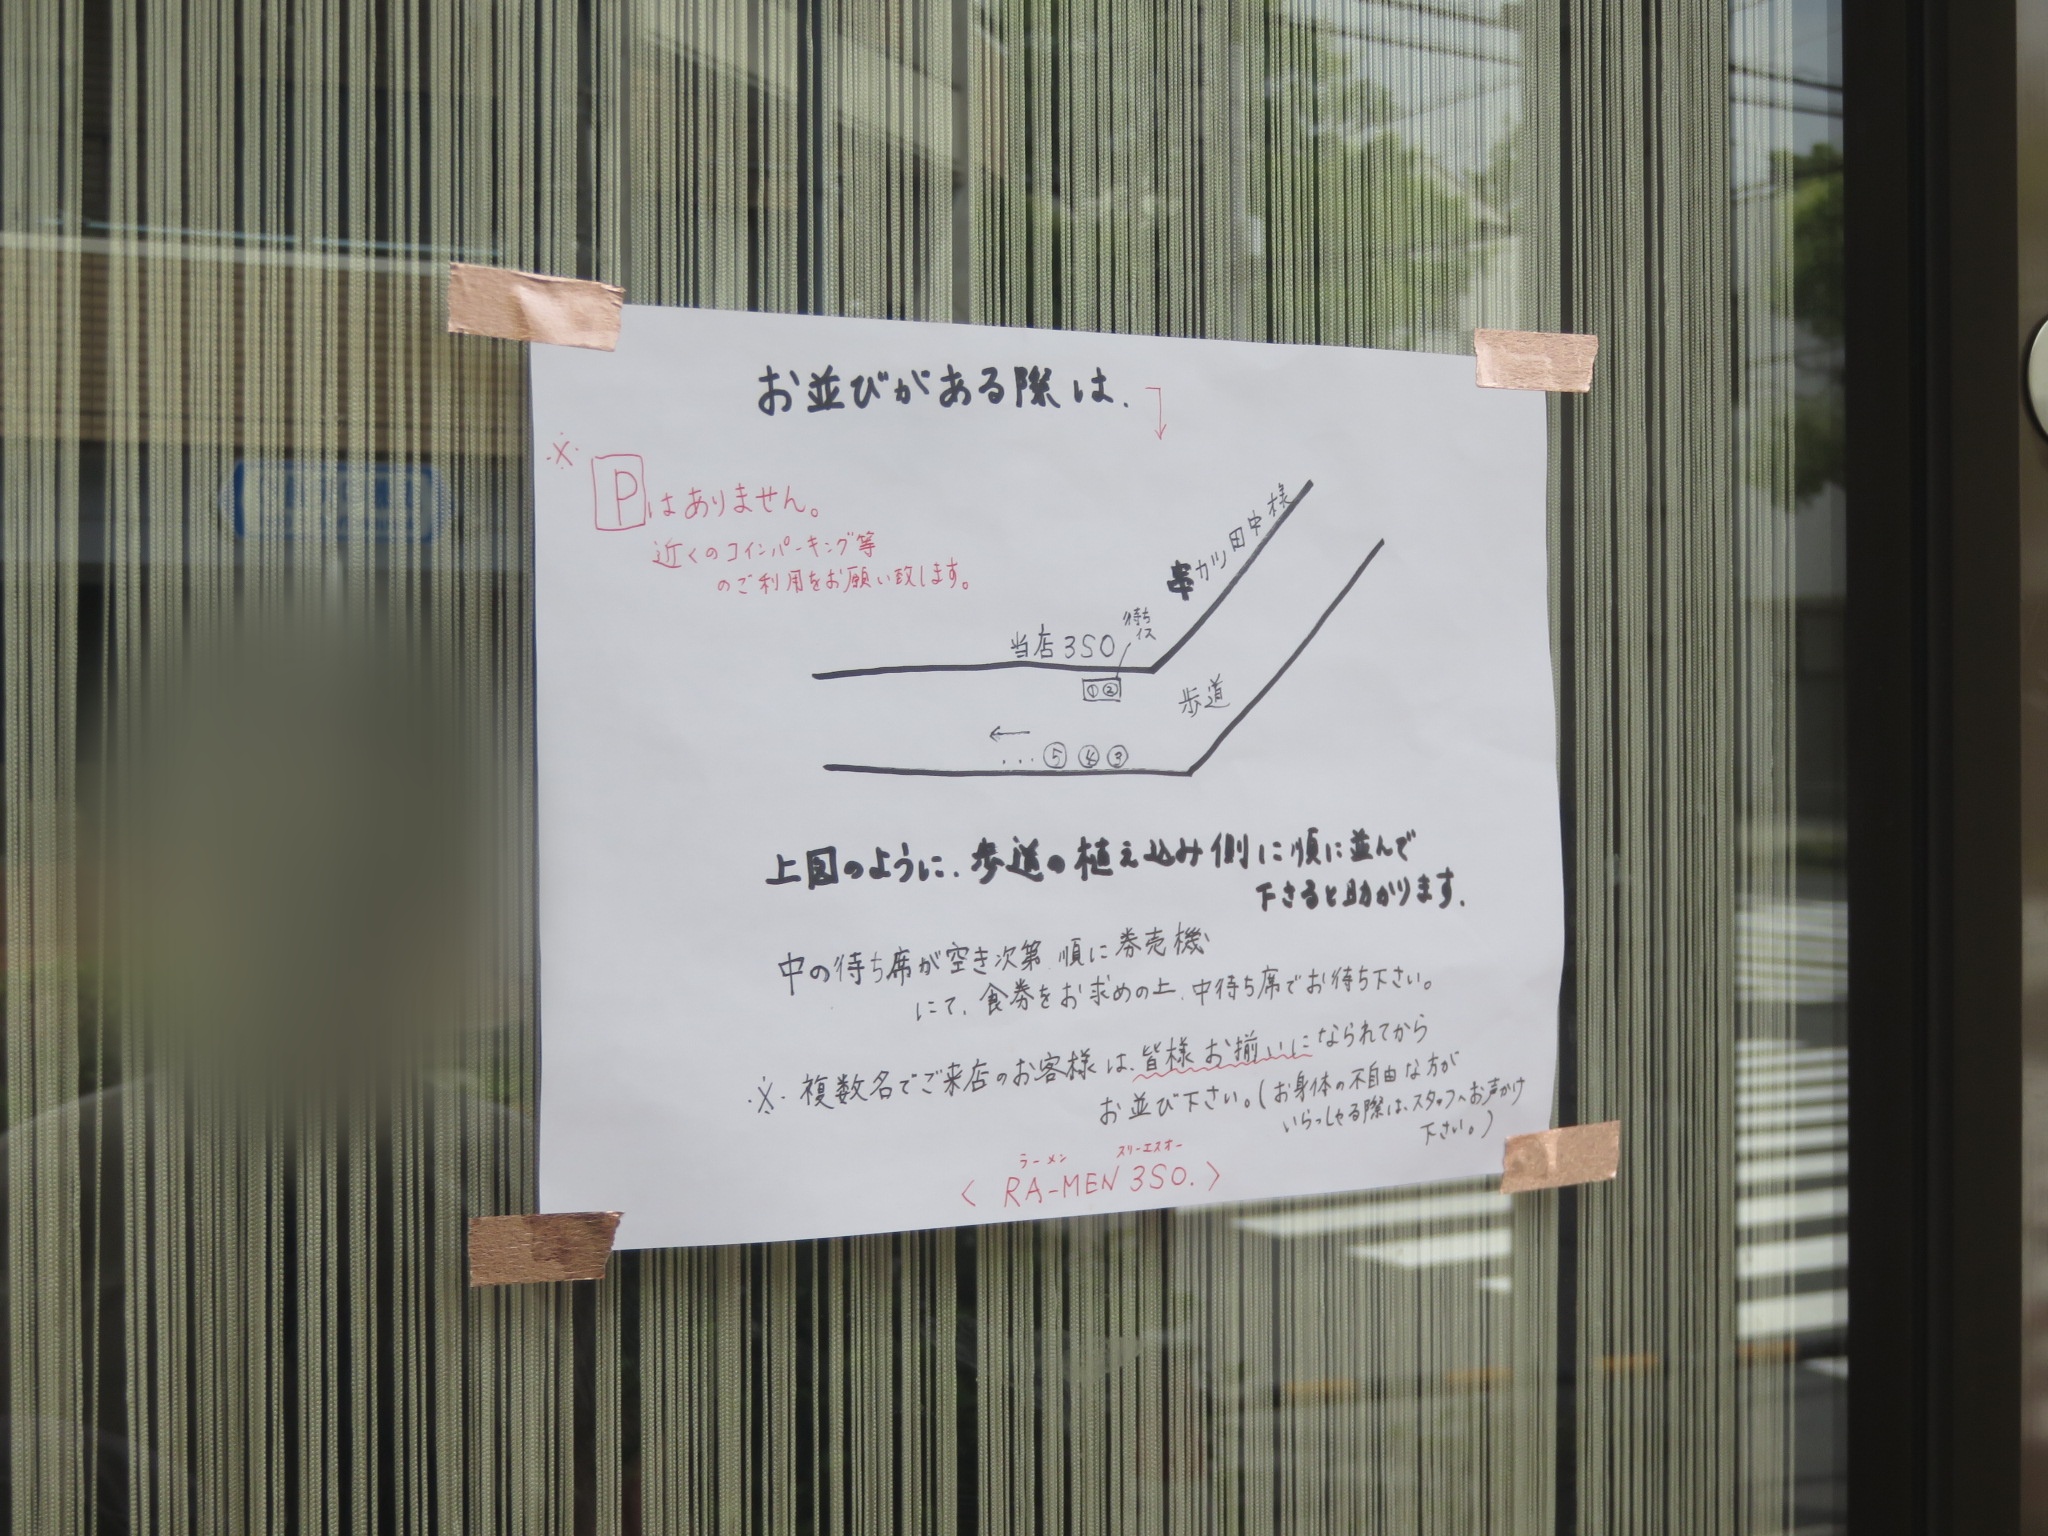 お並びがある際は、
※
Pはありません。
近くのコインパーキング等
のご利用をお願い致します。
串カツ田中様
待ち
イス
当店3SO
①②
歩道
←
…⑤④③
上図のように、歩道の植え込み側に順に並んで
下さると助かります。
中の待ち席が空き次第、順に券売機
にて、食券をお求めの上、中待ち席でお待ち下さい。
※複数名でご来店のお客様は、皆様お揃いになられてから
お並び下さい。(お身体の不自由な方が
いらっしゃる際は、スタッフへお声かけ
下さい。)
ラーメン スリーエスオー
〈 RA-MEN 3SO. 〉